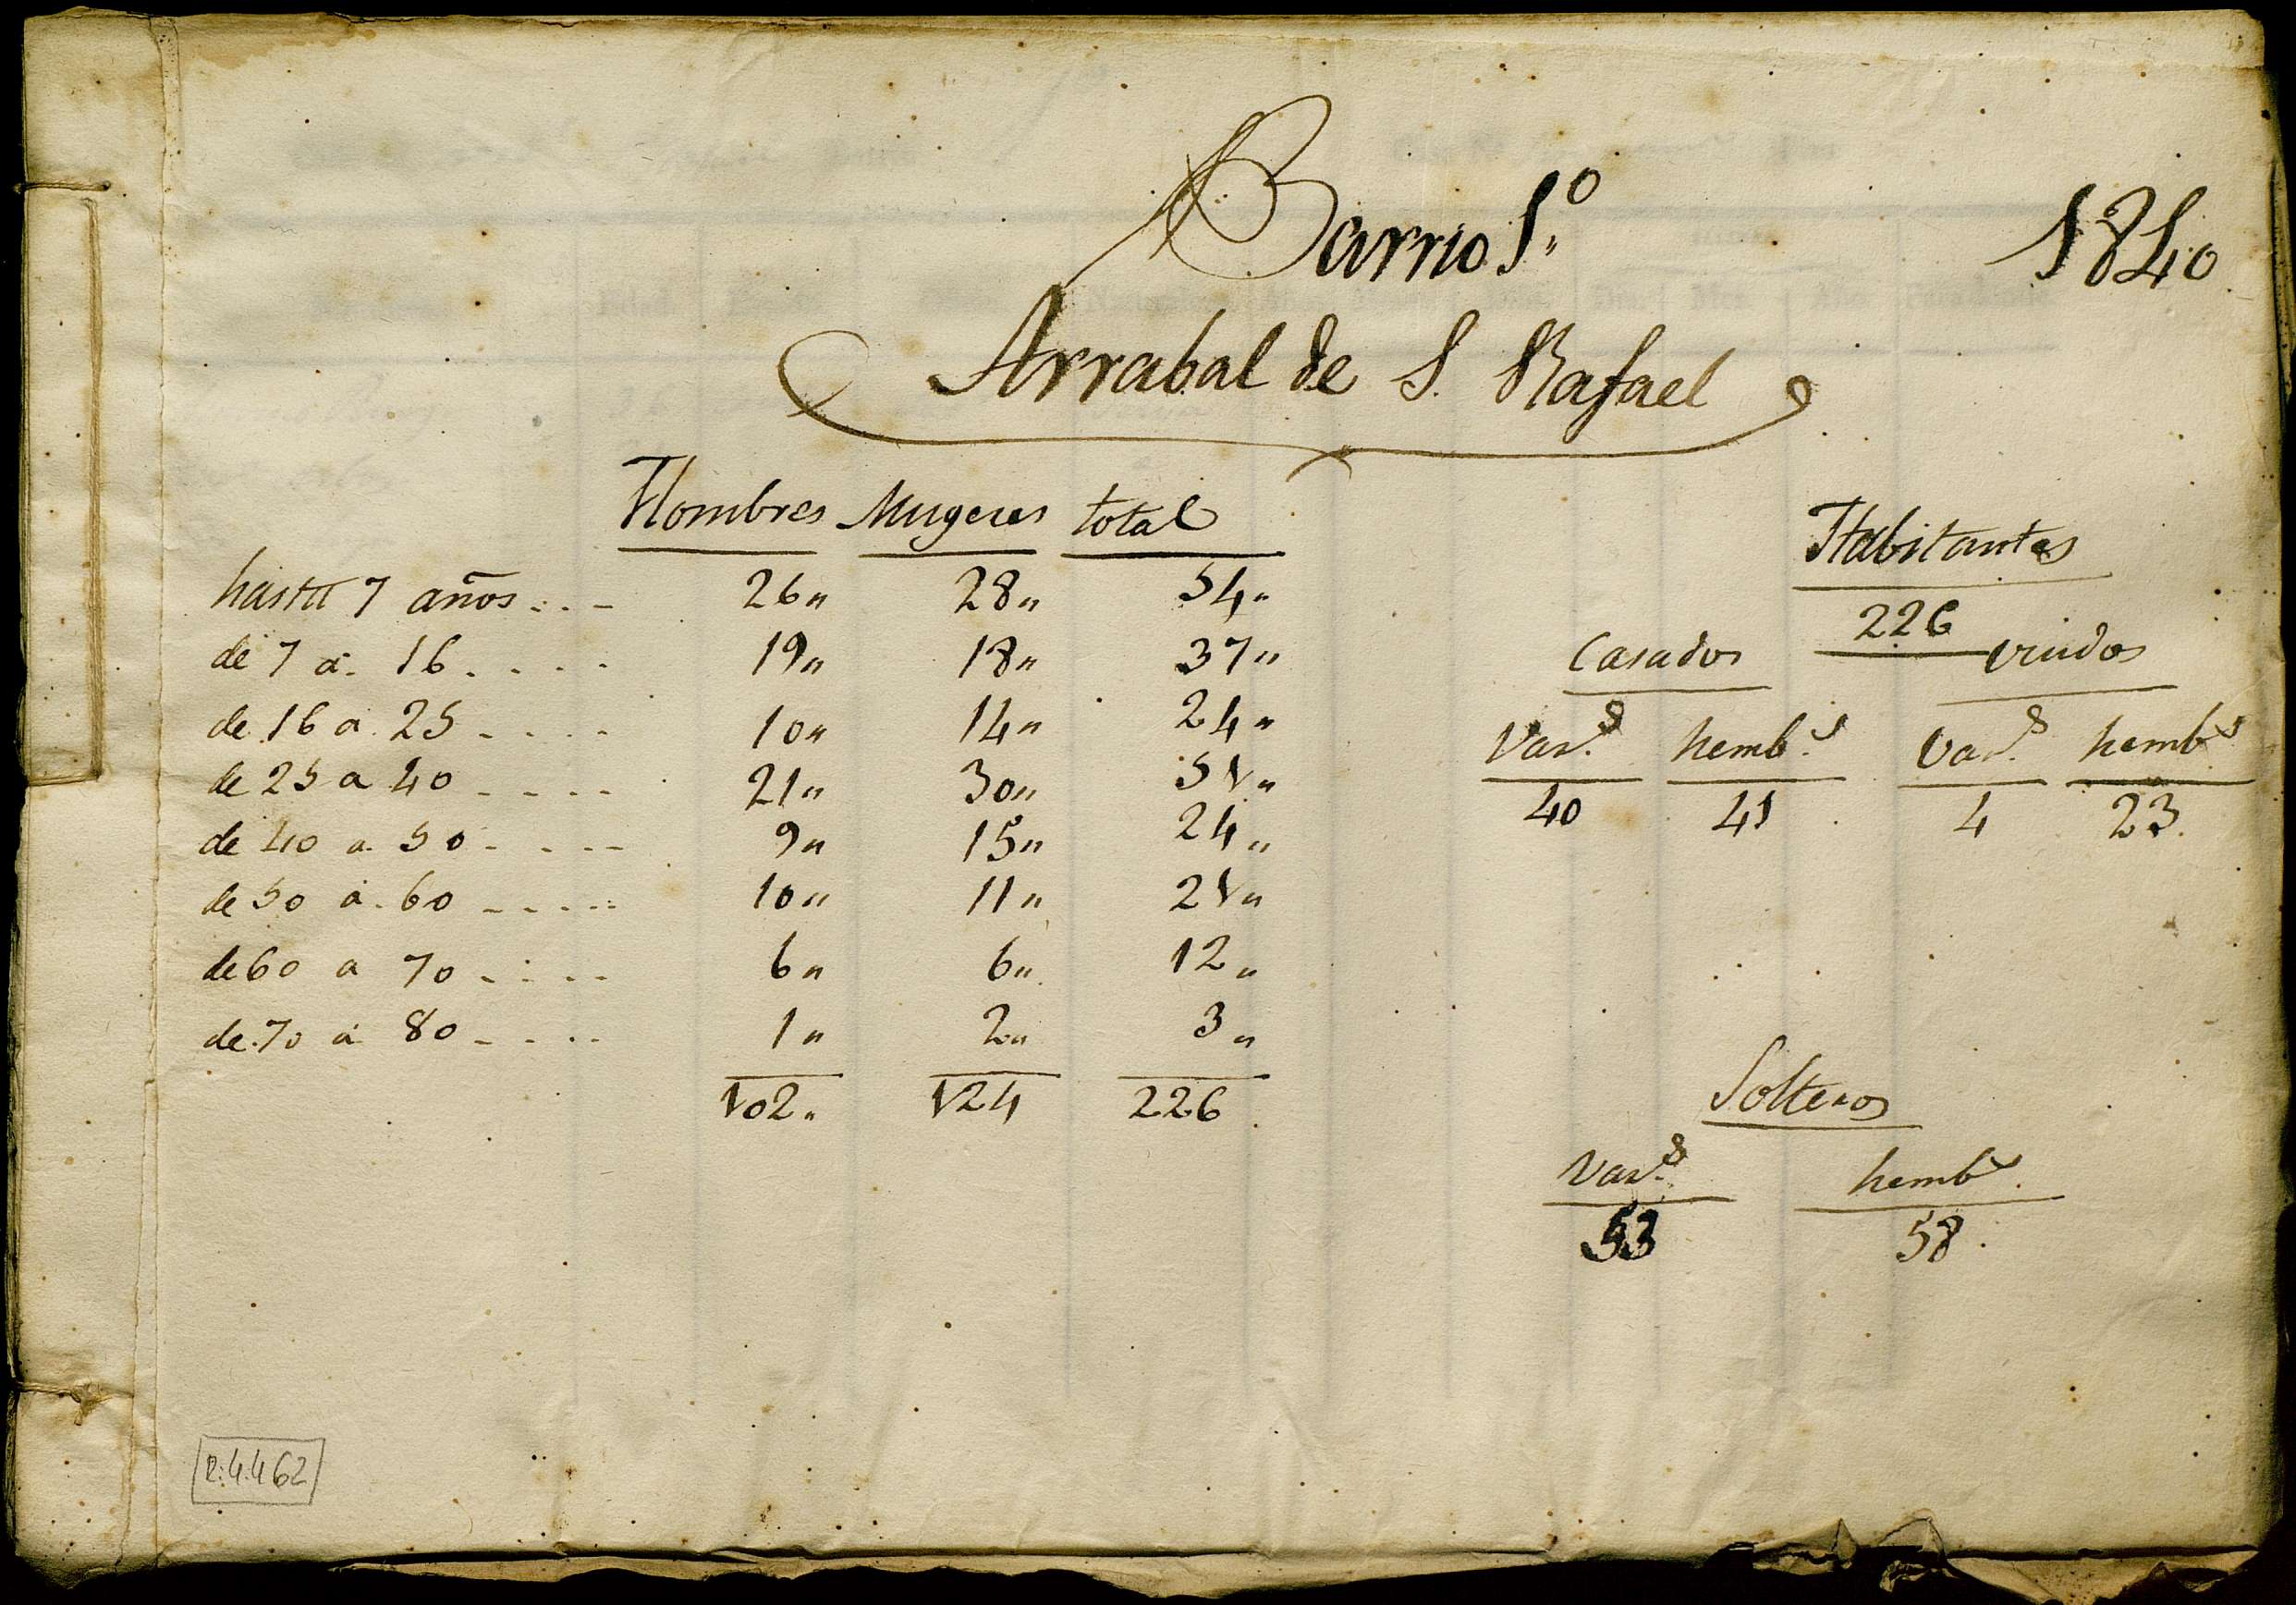 Barrio 1º
1840
Arrabal de S. Rafael
Hombres Mugeres total
hasta 7 años... 26" 28" 54"
de 7 a 16.... 19" 18" 37"
de 16 a 25.... 10" 14" 24"
de 25 a 40.... 21" 30" 51"
de 40 a 50.... 9" 15" 24"
de 50 a 60..... 10" 11" 21"
de 60 a 70.... 6" 6" 12"
de 70 a 80.... 1" 2" 3"
102" 124 226
Habitantes
226
Casados viudos
Var.s hemb.s Var.s hemb.s
40 41 4 23
Solteros
Var.s hemb.s
53 58
R:4.462